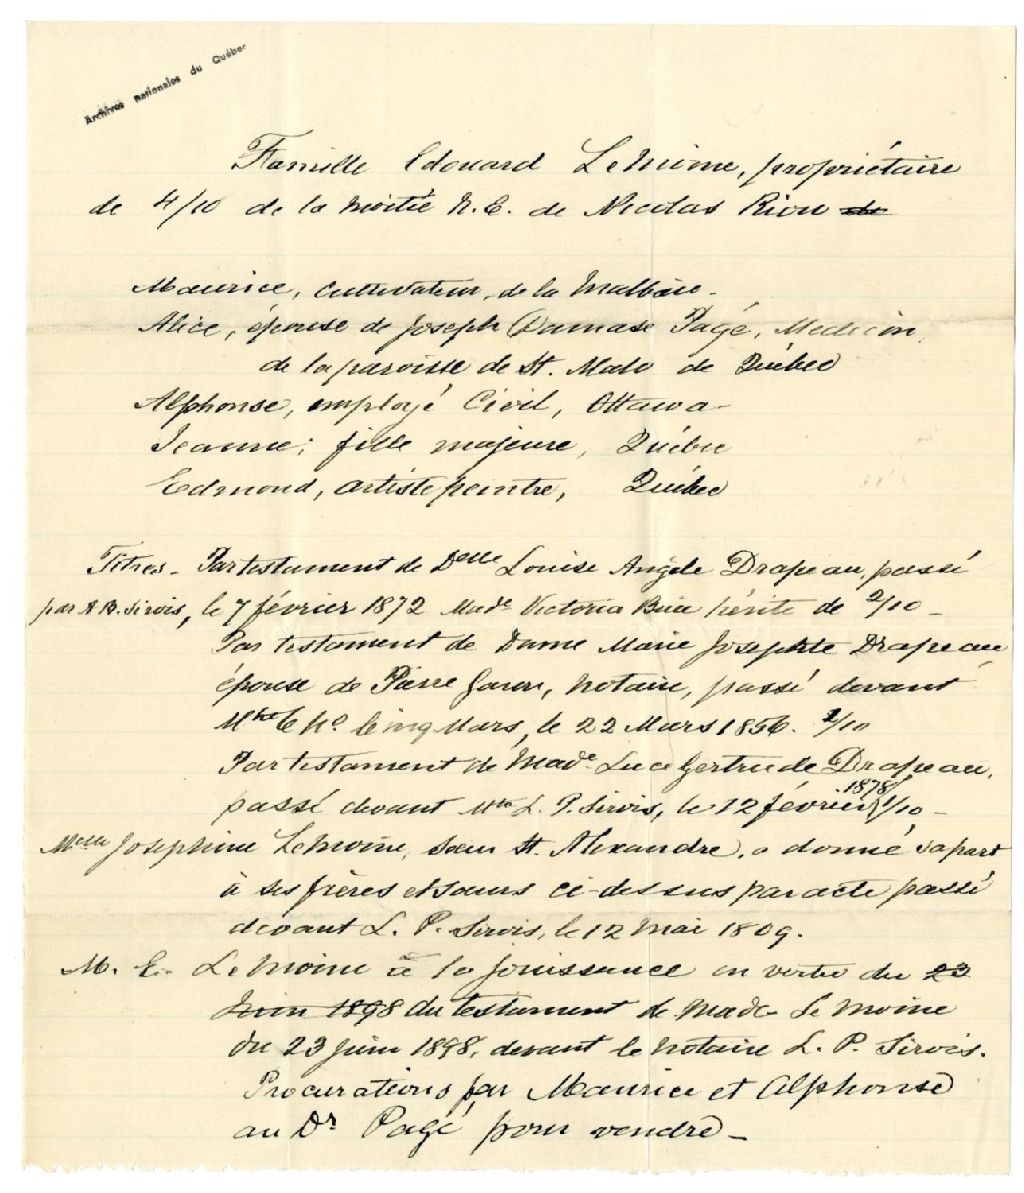 Archives Nationales du Québec
Famille Edouard LeMoine, propriétaire
de 4/10 de la moitié N.E. de Nicolas Riou de
Maurice, cultivateur, de la Malbaie -
Alice, épouse de Joseph Damase Pagé, Medecin,
de la paroisse de St. Malo de Québec
Alphonse, employé Civil, Ottawa -
Jeanne; fille majeure, Québec
Edmond, artiste peintre, Québec
Titres - Par testament de Delle Louise Angèle Drapeau, passé
par A.B. Sirois, le 7 février 1872 Made Victoria hérite de 2/10 -
Par testament de Dame Marie Josephte Drapeau
épouse de Pierre Garon, notaire, passé devant
Mtre Mars, le 22 Mars 1856. 1/10
Par testament de Made Luce Gertrude Drapeau,
passé devant Mtre L. P. Sirois, le 12 février 1878 1/10 -
Melle Josephine LeMoine, soeur St. Alexandre, a donné sa part
à ses frères et soeurs ci-dessus par acte passé
devant L. P. Sirois, le 12 mai 1809.
M. E. LeMoine a la jouissance en vertu du 23
Juin 1898 du testament de Made Le Moine
du 23 juin 1898, devant le notaire L. P. Sirois.
Procurations par Maurice et Alphonse
au Dr Pagé pour vendre -